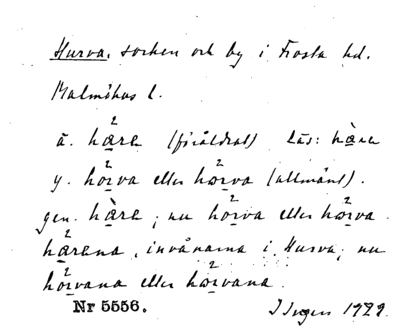 Hurva, socken och by i Frosta hd.
Malmöhus l.
ä. hære (föråldrat) läs: hàre
y. hörva eller hörva (allmänt).
gen. hære; nu hörva eller hörva.
hærena, invånarna i Hurva; nu
hörvana eller hörvana.
Nr 5556. I. Ingers 1929.